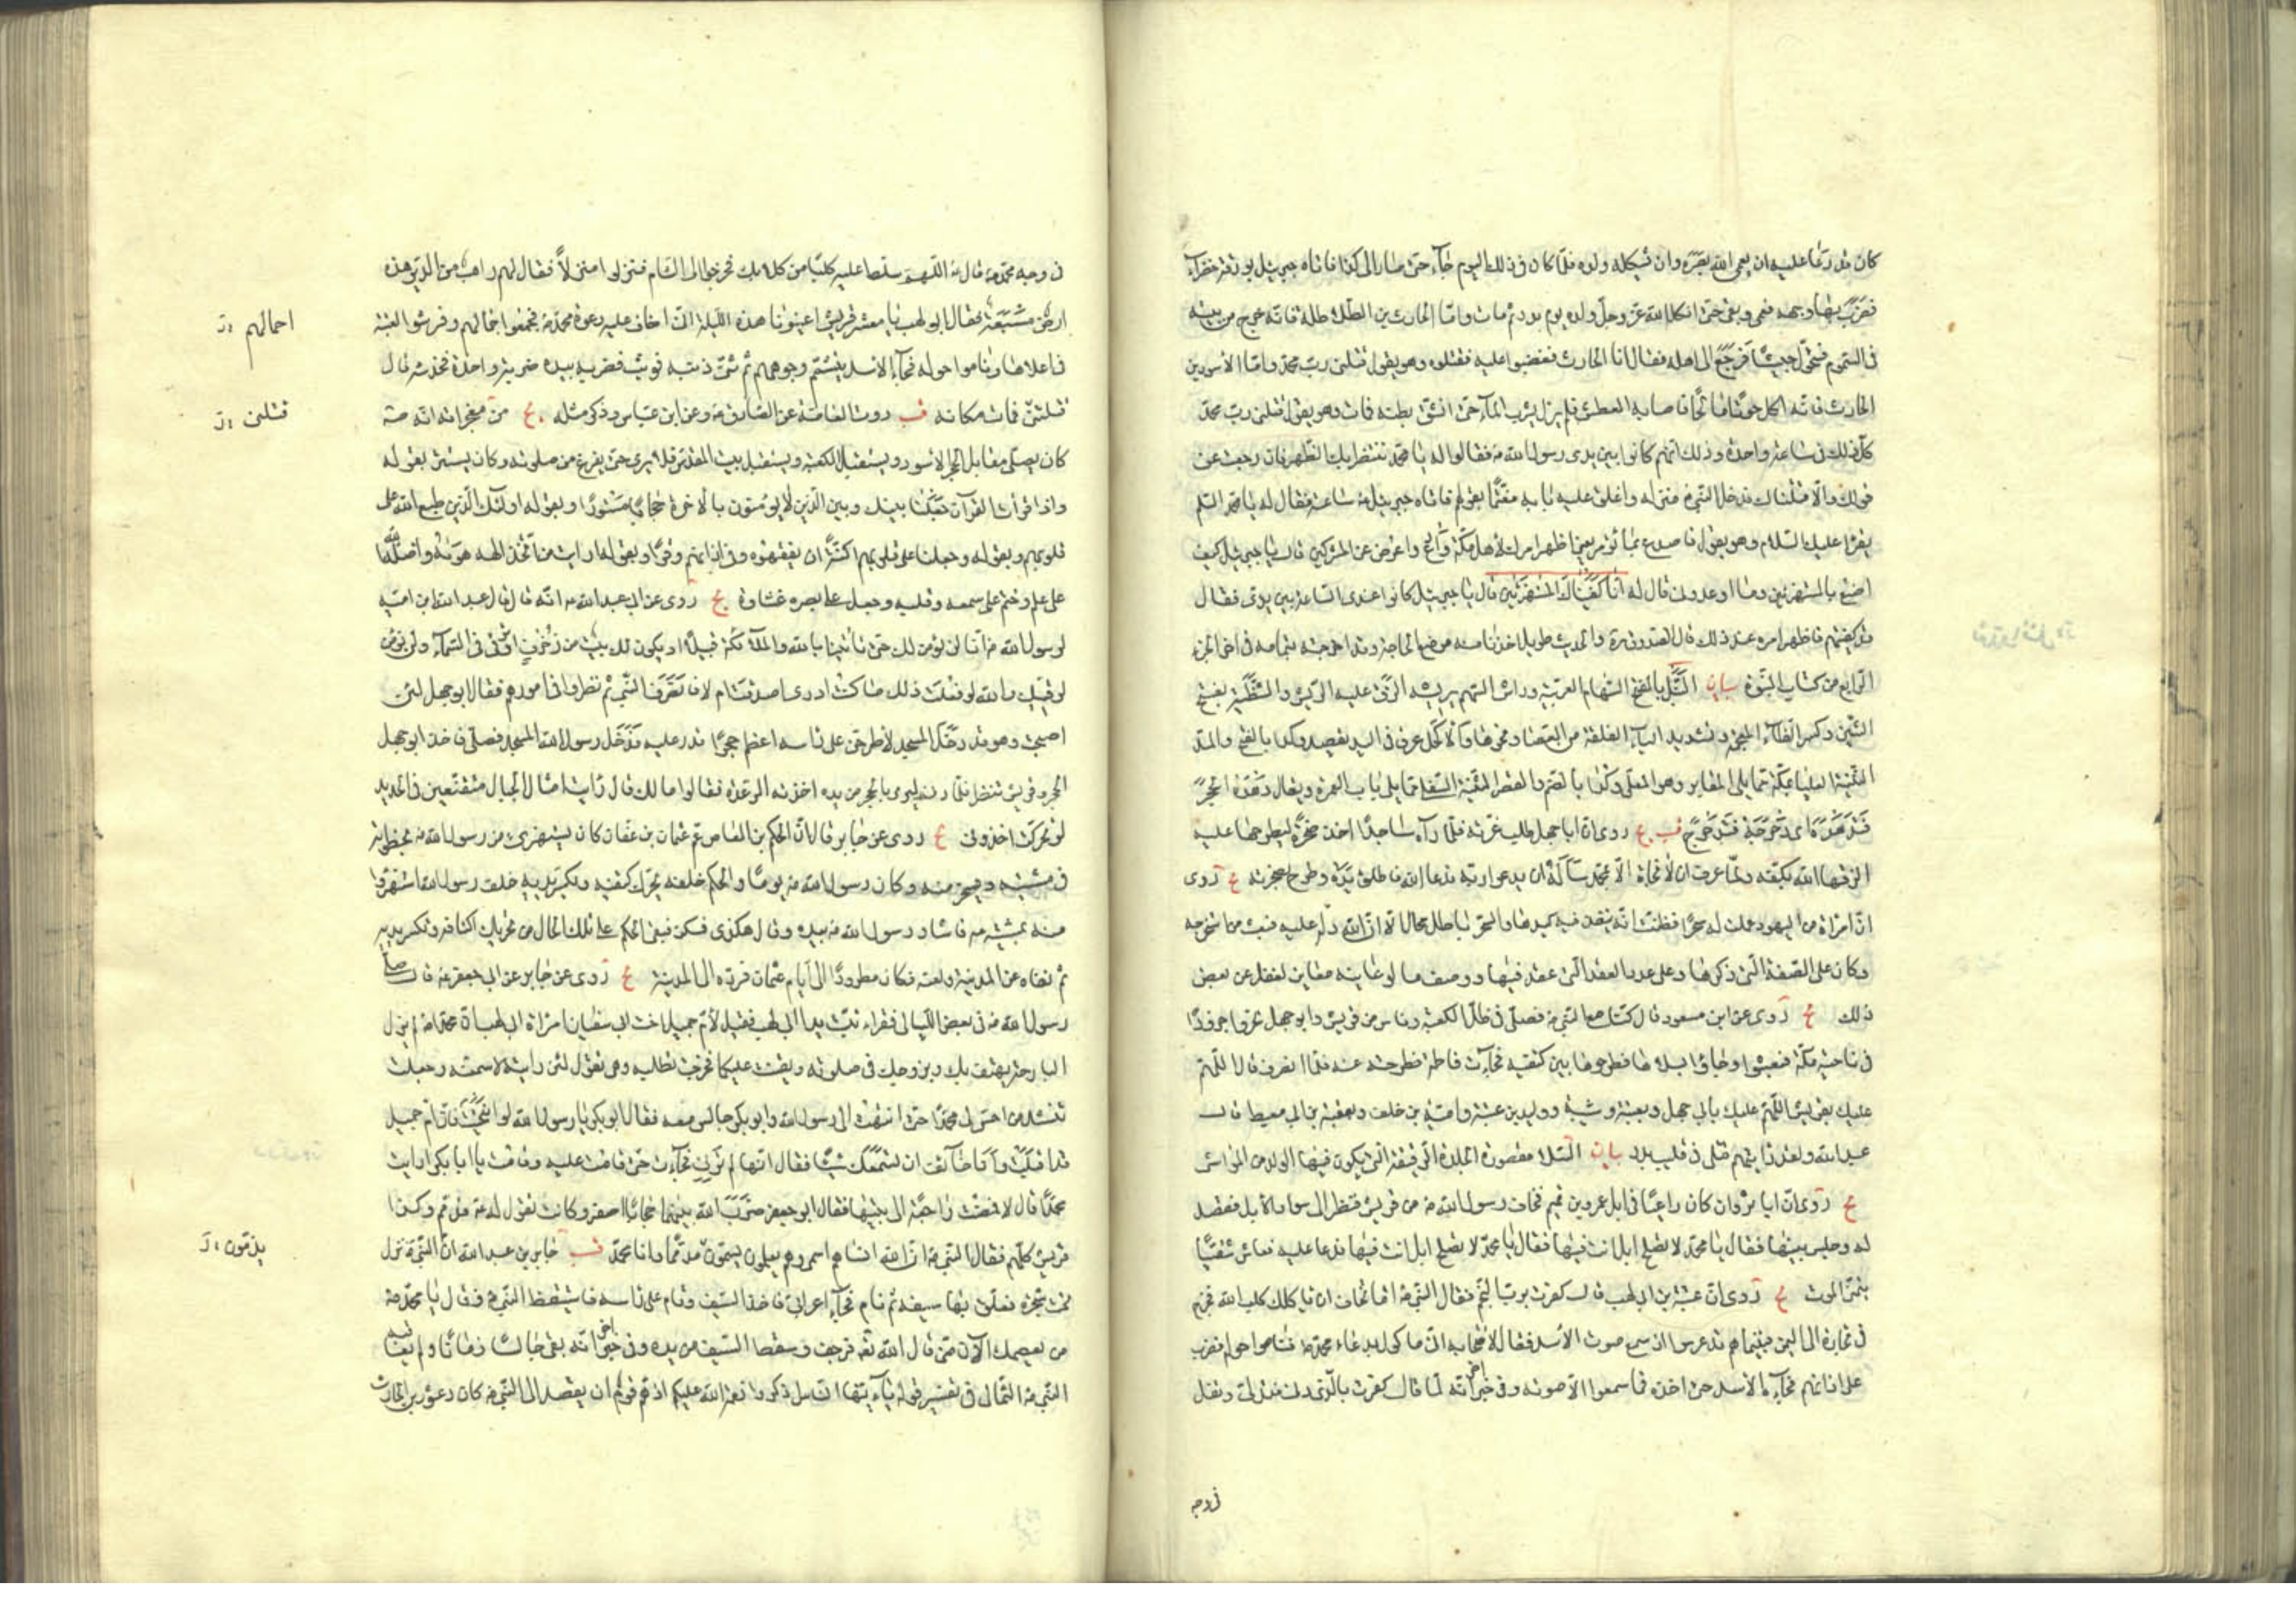 كان قد دعا عليه ان يعمي الله بصره وان يثكله ولده فلما كان في ذلك اليوم جاء حتى صار الى كدا فاتاه جبرئيل بورقة خضراء
فضرب بها وجهه فعمي وبقي حتى اثكله الله عز وجل ولده يوم بدر ثم مات واما الحارث بن الطلاطلة فانه خرج من بيته
في السموم فتحول حبشيا فرجع الى اهله فقال انا الحارث فغضبوا عليه فقتلوه وهو يقول قتلني رب محمد واما الاسود بن
الحارث فانه اكل حوتا مالحا فاصابه العطش فلم يزل يشرب الماء حتى انشق بطنه فمات وهو يقول قتلني رب محمد
كل ذلك في ساعة واحدة وذلك انهم كانوا بين يدي رسول الله ص فقالوا له يا محمد ننتظر بك الظهر فان رجعت عن
قولك والا قتلناك فدخل النبي ص منزله واغلق عليه بابه مغتما بقولهم فاتاه جبرئيل ع ساعته فقال له يا محمد السلم
يقرا عليك السلام وهو يقول فاصدع بما تؤمر يعني اظهر امرك لاهل مكة وادع واعرض عن المشركين قال يا جبرئيل كيف
اصنع بالمستهزئين وما اوعدوني قال له انا كفيناك المستهزئين قال يا جبرئيل كانوا عندي الساعة بين يدي فقال
قد كفيتهم فاظهر امره عند ذلك قال الصدوق ره والحديث طويل اخذنا منه موضع الحاجة وقد اخرجته بتمامه في اخر الجزء
الرابع من كتاب النبوة بيان النبل بالفتح السهام العربية وراش السهم يريشه الزق عليه الريش والشظية بفتح
الشين وكسر الظاء المعجمة وتشديد الياء الفلقة من العصا ونحوها والاكحل عرق في اليد يفصد وكداء بالفتح والمد
الثنية العليا بمكة مما يلي المقابر وهو المعلى وكدا بالضم والقصر الثنية السفلى مما يلي باب العمرة ويقال دهدة الحجر
فتدهدة اى دحرجه فتدحرج قب يج روى ان ابا جهل طلب غرته فلما رآه ساجدا اخذ صخرة ليطرحها عليه
الزقها الله بكفه ولما عرف ان لا نجاة الا بمحمد ساله ان يدعو ربه فدعا الله فاطلق يده وطرح صخرته يج روى
ان امراة من اليهود عملت له سحرا فظنت انه ينفذ فيه كيدها والسحر باطل محال الا ان الله دله عليه فبعث من استخرجه
وكان على الصفة التي ذكرها وعلى عدد العقد التي عقد فيها ووصف ما لو عاينه معاين لغفل عن بعض
ذلك يج روى عن ابن مسعود قال كنا مع النبي ص فصلى في ظل الكعبة وناس من قريش وابو جهل نحروا جزورا
في ناحية مكة فبعثوا وجاؤا بسلاها فطرحوها بين كتفيه فجاءت فاطمة فطرحته عنه فلما انصرف قال اللهم
عليك بقريش اللهم عليك بابي جهل وبعتبة وشيبة ووليد بن عتبة وامية بن خلف وبعقبة بن ابي معيط قال
عبد الله ولقد رايتهم قتلى في قليب بدر بيان السلا مقصورة الجلدة الرقيقة التي يكون فيها الولد من المواشي
يج روى ان ابا ثروان كان راعيا في ابل عمرو بن تميم فخاف رسول الله ص من قريش فنظر الى سواد الابل فقصد
له وجلس بينها فقال يا محمد لا يصلح ابل انت فيها فقال يا محمد لا يصلح ابل انت فيها فدعا عليه فعاش شقيا
يتمنى الموت يج روى ان عتبة بن ابي لهب قال كفرت برب النجم فقال النبي ص اما تخاف ان ياكلك كلب الله فخرج
في تجارة الى اليمن فبينما هم قد عرسوا اذ سمع صوت الاسد فقال لاصحابه اني ماكول بدعاء محمد ص فناموا حوله فضرب
على اذانهم فجاء الاسد حتى اخذه فما سمعوا الا صوته وفي خبر اخر انه لما قال كفرت بالذي دنى فتدلى وتفل
في وجه
في وجه محمد ص قال ص اللهم سلط عليه كلبا من كلابك فخرجوا الى الشام فنزلوا منزلا فقال لهم راهب من الدير هذه
ارض مسبعة فقال ابو لهب يا معشر قريش اعينونا هذه الليلة اني اخاف عليه دعوة محمد ص فجمعوا جمالهم وفرشوا لعتبة
في اعلاها وناموا حوله فجاء الاسد يتشمم وجوههم ثم ثنى ذنبه فوثب فضربه بيده ضربة واحدة فخدشه قال
قتلتني فمات مكانه قب روت العامة عن الصادق ع وعن ابن عباس وذكر مثله يج من معجزاته انه ص
كان يصلي مقابل الحجر الاسود ويستقبل الكعبة ويستقبل بيت المقدس فلا يرى حتى يفرغ من صلوته وكان يستتر بقوله
واذا قرات القرآن جعلنا بينك وبين الذين لا يؤمنون بالآخرة حجابا مستورا وبقوله اولئك الذين طبع الله على
قلوبهم وبقوله وجعلنا على قلوبهم اكنة ان يفقهوه وفي اذانهم وقرا وبقوله ارايت من اتخذ الهه هويه واضله الله
على علم وختم على سمعه وقلبه وجعل على بصره غشاوة يج روى عن ابي عبد الله ع انه قال قال عبد الله ابن امية
لرسول الله ص انا لن نؤمن لك حتى تاتينا بالله والملائكة قبيلا او يكون لك بيت من زخرف او ترقى في السماء ولن نؤمن
لرقيك والله لو فعلت ذلك ما كنت ادري اصدقت ام لا فانصرف النبي ثم نظروا في امورهم فقال ابو جهل لئن
اصبحت وهو قد دخل المسجد لاطرحن على راسه اعظم حجر اقدر عليه فدخل رسول الله المسجد فصلى فاخذ ابو جهل
الحجر وقريش تنظر فلما دنى ليرمي بالحجر من يده اخذته الرعدة فقالوا ما لك قال رايت امثال الجبال متقنعين في الحديد
لو تحركت اخذوني يج روى عن جابر قال ان الحكم بن العاص عم عثمان بن عفان كان يستهزئ من رسول الله ص بخطوته
في مشيته ويسخر منه وكان رسول الله ص يوما والحكم خلفه يحرك كتفيه ويكسر يديه خلف رسول الله استهزاء
منه بمشيته ص فاشار رسول الله ص بيده وقال هكذى فكن فبقي الحكم على تلك الحال من تحريك اكتافه وتكسر يديه
ثم نفاه عن المدينة ولعنه فكان مطرودا الى ايام عثمان فرده الى المدينة يج روى عن جابر عن ابي جعفر ع قال صلى
رسول الله ص في بعض الليالي فقراء تبت يدا ابي لهب فقيل لام جميل اخت ابي سفيان امراة ابي لهب ان محمدا ص لم يزل
البارحة يهتف بك وبزوجك في صلوته ويقنت عليكما فخرجت تطلبه وهي تقول لئن رايته لاسمعنه وجعلت
تنشد من احس لي محمدا حتى انتهت الى رسول الله وابو بكر جالس معه فقال ابو بكر يا رسول الله لو انتحيت فان ام جميل
قد اقبلت وانا خائف ان تسمعك شيئا فقال انها لم ترني فجاءت حتى قامت عليه وقالت يا ابا بكر ارايت
محمدا قال لا فمضت راجعة الى بيتها فقال ابو جعفر ضرب الله بينهما حجابا اصفر وكانت تقول له ص مذمم وكذا
قريش كلهم فقال النبي ص ان الله انساهم اسمي وهم يعلمون يسمون مذمما وانا محمد قب جابر بن عبد الله ان النبي ص نزل
تحت شجرة فعلق بها سيفه ثم نام فجاء اعرابي فاخذ السيف وقام على راسه فاستيقظ النبي ص فقال يا محمد ص
من يعصمك الآن مني قال الله تعالى فرجف وسقط السيف من يده وفي خبر اخر انه بقي جالسا زمانا ولم يعاقبه
النبي ص الثمالي في تفسير قوله يا ايها الناس اذكروا نعمة الله عليكم اذ هم قوم ان يقصد الى النبي ص كان دعثور بن الحارث
احمالهم
قتلني
يذمون